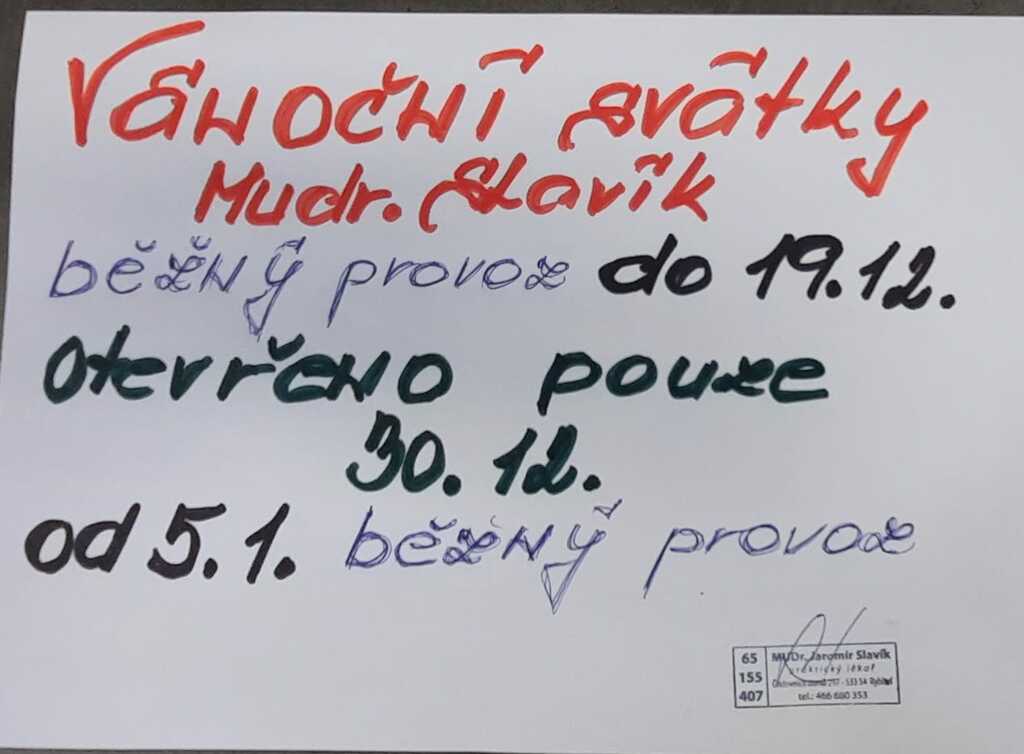 Vánoční svátky
Mudr. Slavík
běžný provoz do 19.12.
Otevřeno pouze
30.12.
od 5.1. běžný provoz
65
155
407
MUDr. Jaromír Slavík
praktický lékař
257 - 533 54 Rybitví
tel.: 466 680 353